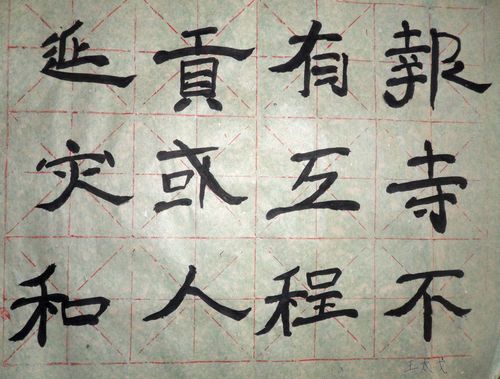 報寺不
有互程
貢或人
延灾和